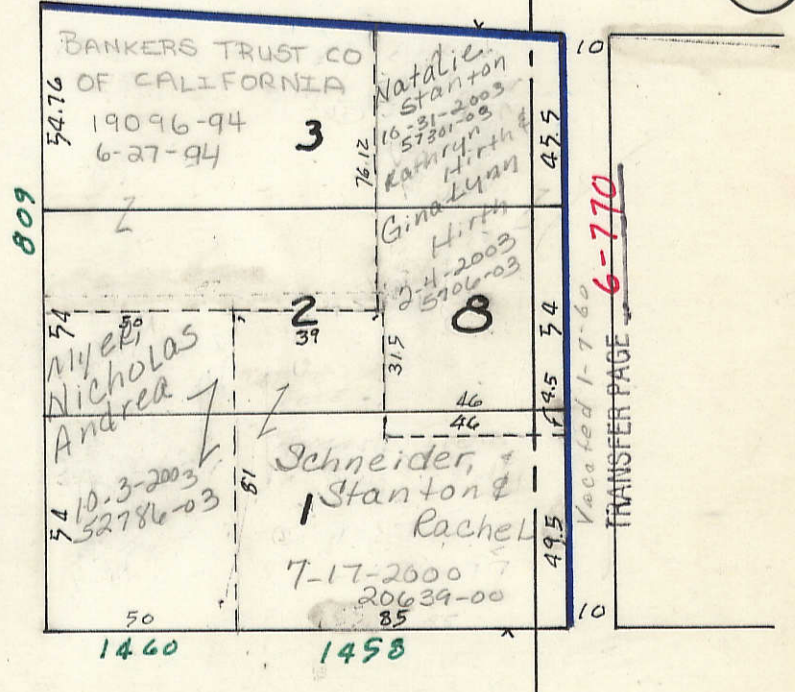 BANKERS TRUST CO
OF CALIFORNIA
19096-94
6-27-94
3
54.76
76.12
Natalie
Stanton
10-31-2003
57301-03
Kathryn
Hirth &
Gina Lynn
Hirth
2-4-2003
5706-03
45.5
10
809
6-770
TRANSFER PAGE
Vacated 1-7-60
2
39
54
50
8
54
31.5
46
46
4.5
Myer,
Nicholas
Andrea
10-3-2003
52786-03
54
50
81
1
Schneider,
Stanton &
Rachel
7-17-2000
20639-00
85
49.5
10
1460
1458